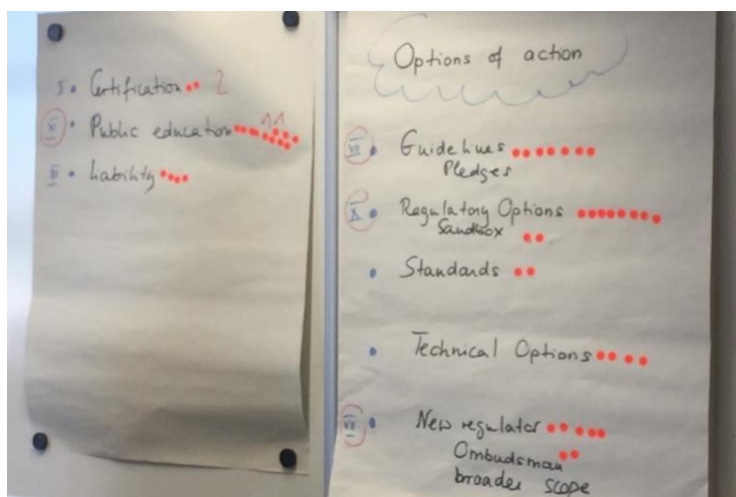 Certification 2
XI Public education 11
III Liability
Options of action
VII Guidelines
Pledges
X Regulatory Options
Sandbox
Standards
Technical Options
VII New regulator
Ombudsman
broader scope